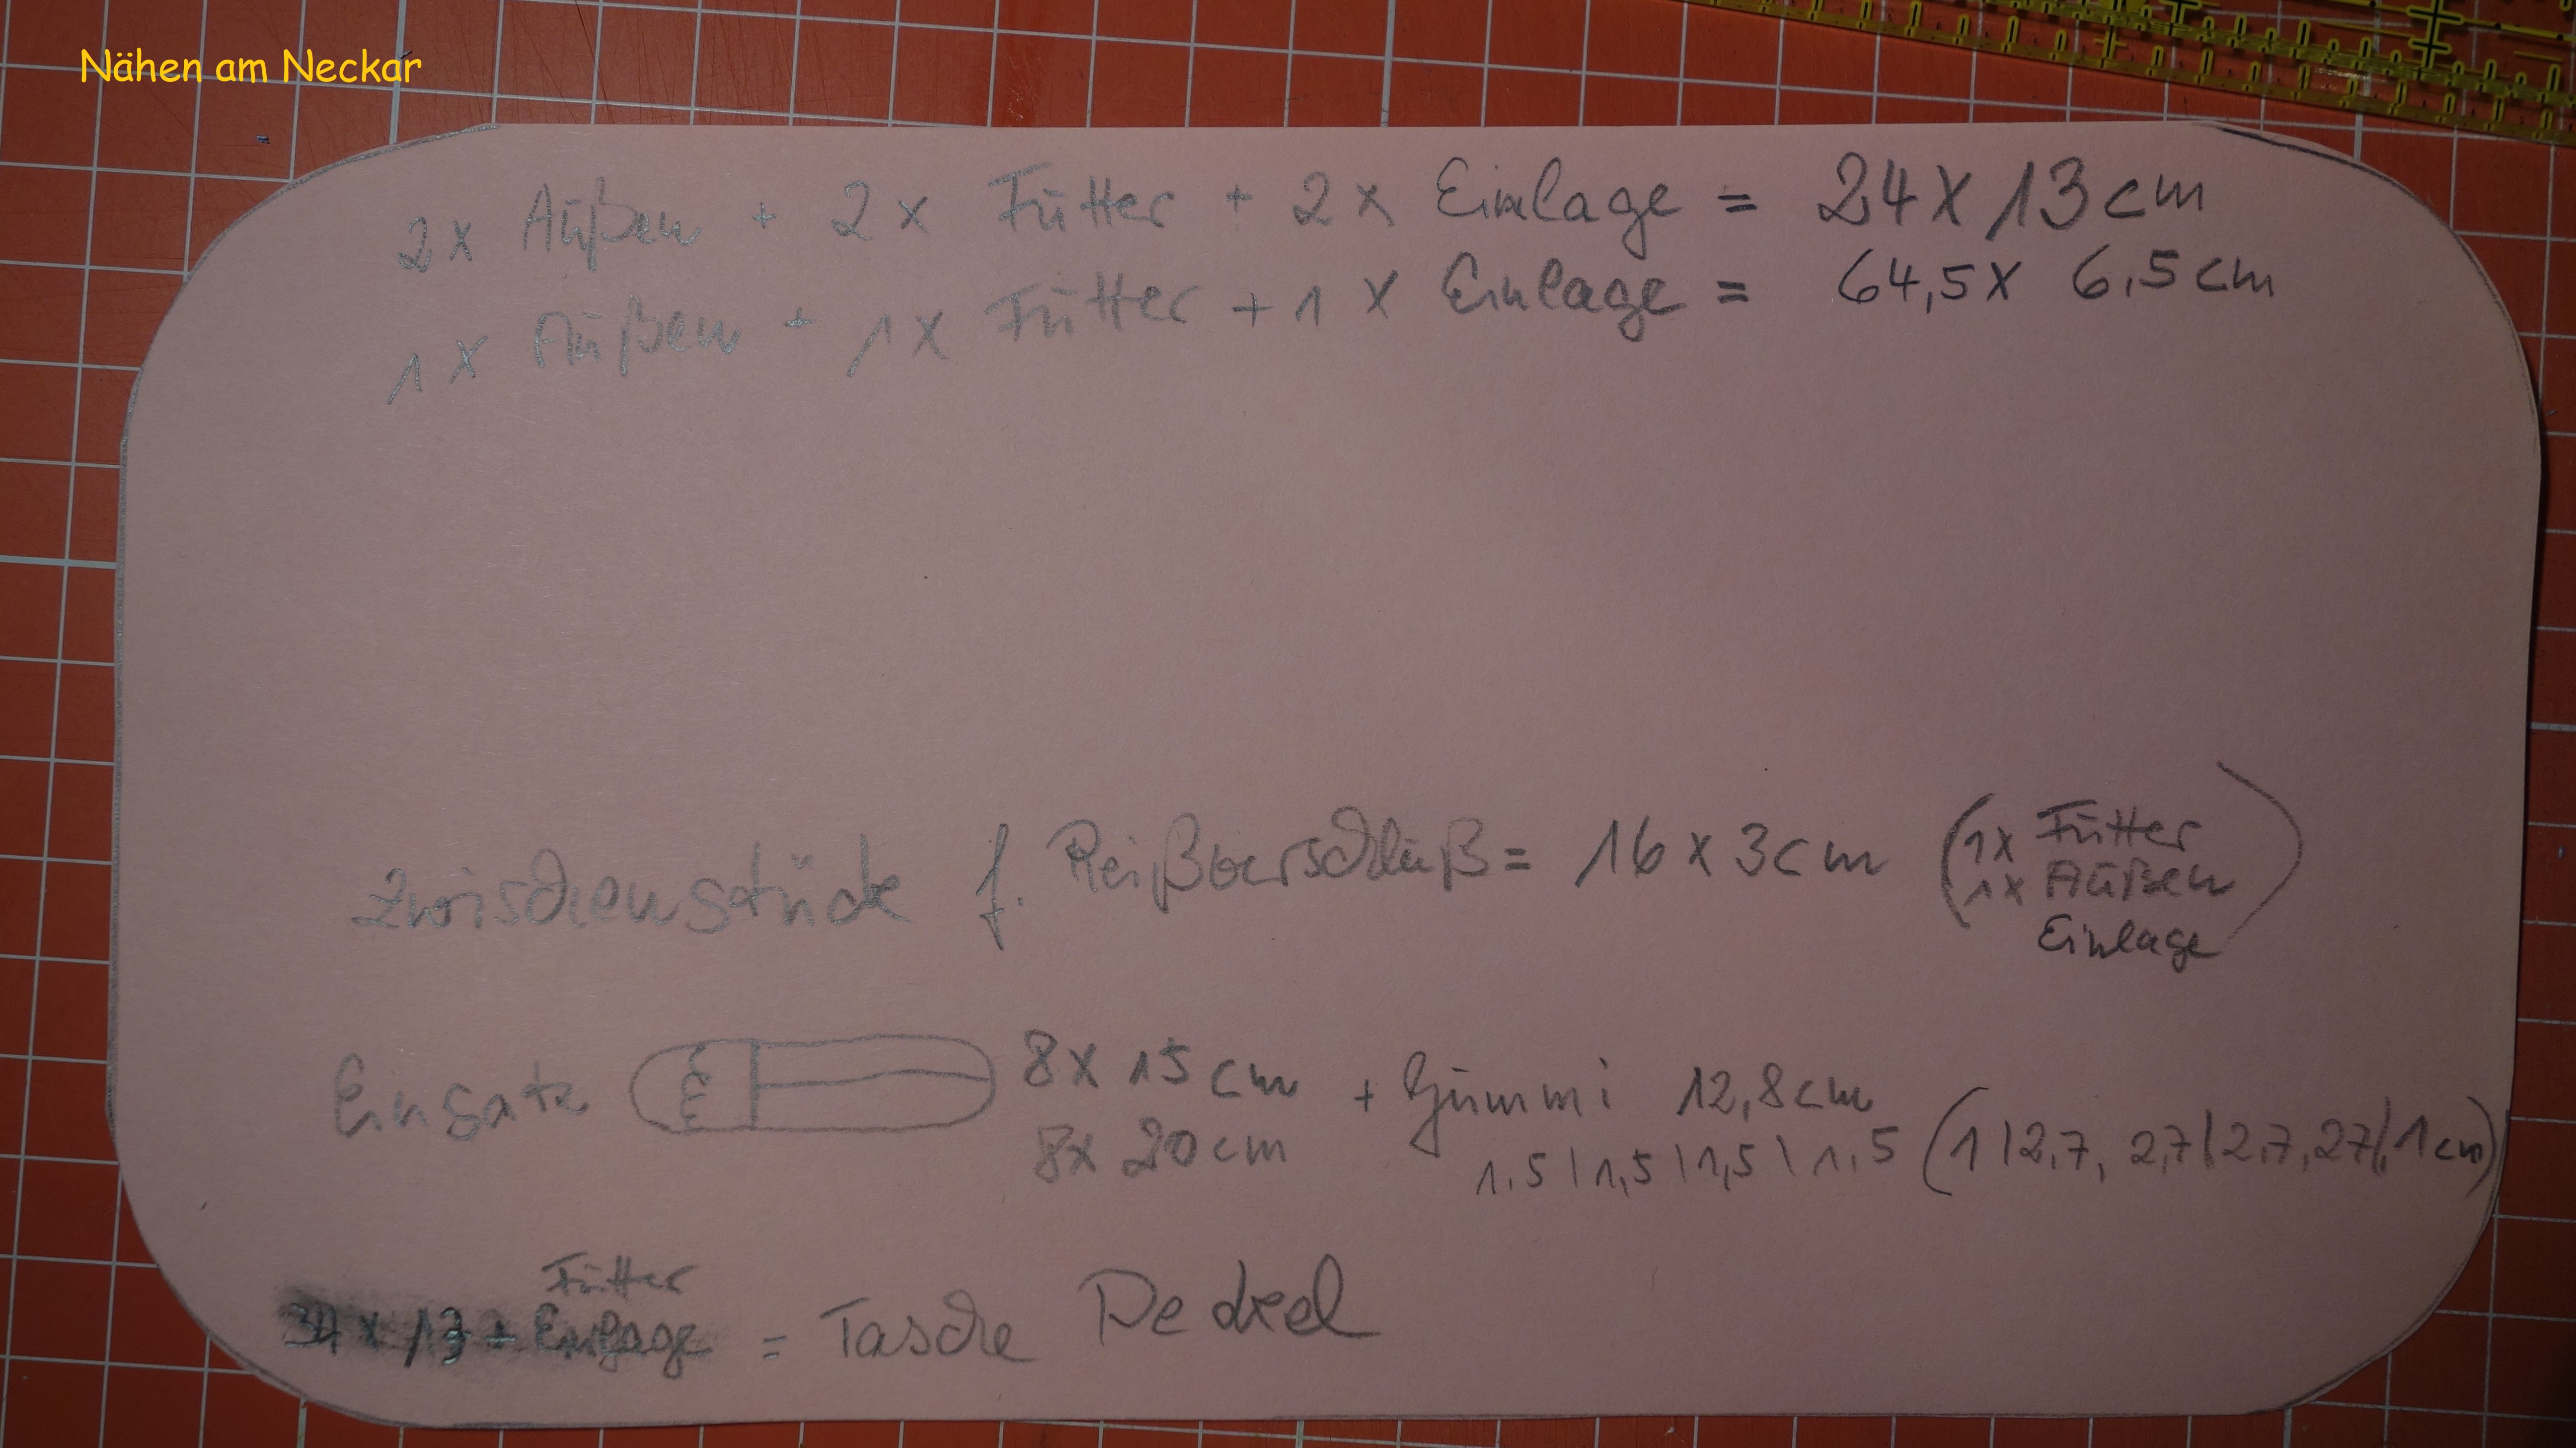 Nähen am Neckar
2x Außen + 2x Futter + 2x Einlage = 24 x 13 cm
1x Außen + 1x Futter + 1x Einlage = 64,5 x 6,5 cm
Zwischenstück f. Reißverschluß = 16 x 3 cm (1x Futter
1x Außen
Einlage)
Einsatz 8 x 15 cm + Gummi 12,8 cm
8x 20 cm 1,5 | 1,5 | 1,5 | 1,5 (1 | 2,7, 2,7 | 2,7, 27 |, 1 cm)
Futter
x 13 + Einlage = Tasche Deckel